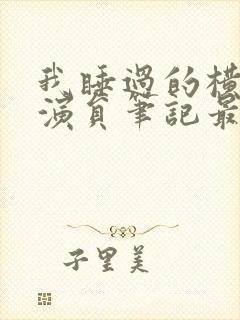 我睡過的橫
演員筆記最
子里美